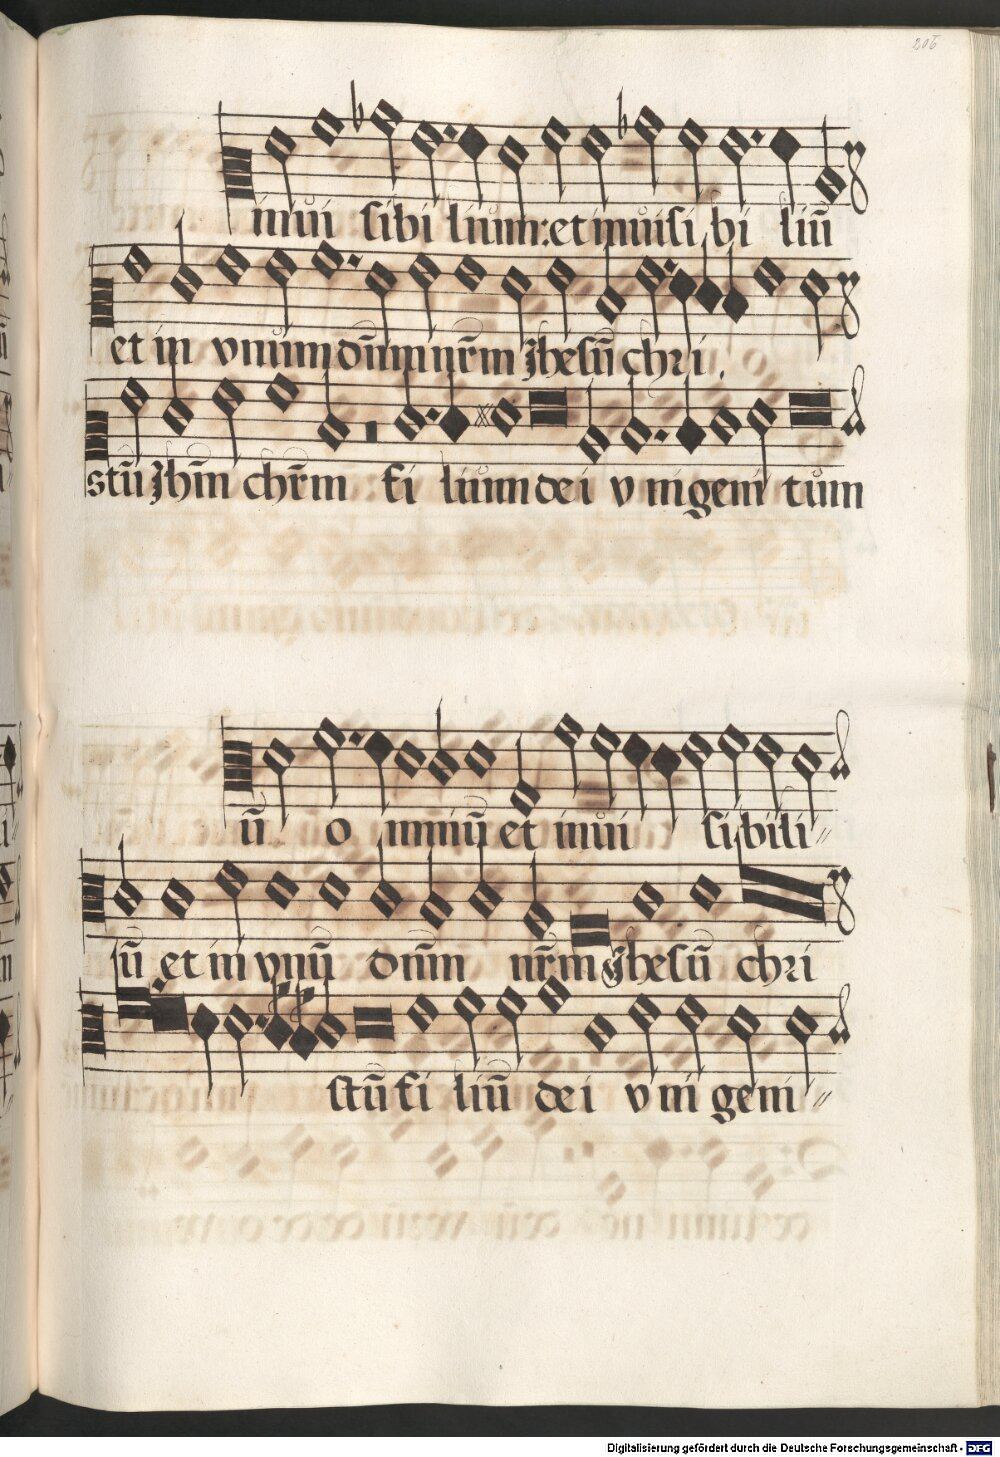 206
inuisibilium: et inuisibiliū
et in vnum dn̄m nr̄m Jhesū chri
stū Jhm̄ chr̄m filium dei vnigenitum
ū omniū et inuisibili〃
ū et in vnū dn̄m nr̄m Jhesū chri
stū filiū dei vnigeni〃
Digitalisierung gefördert durch die Deutsche Forschungsgemeinschaft - DFG